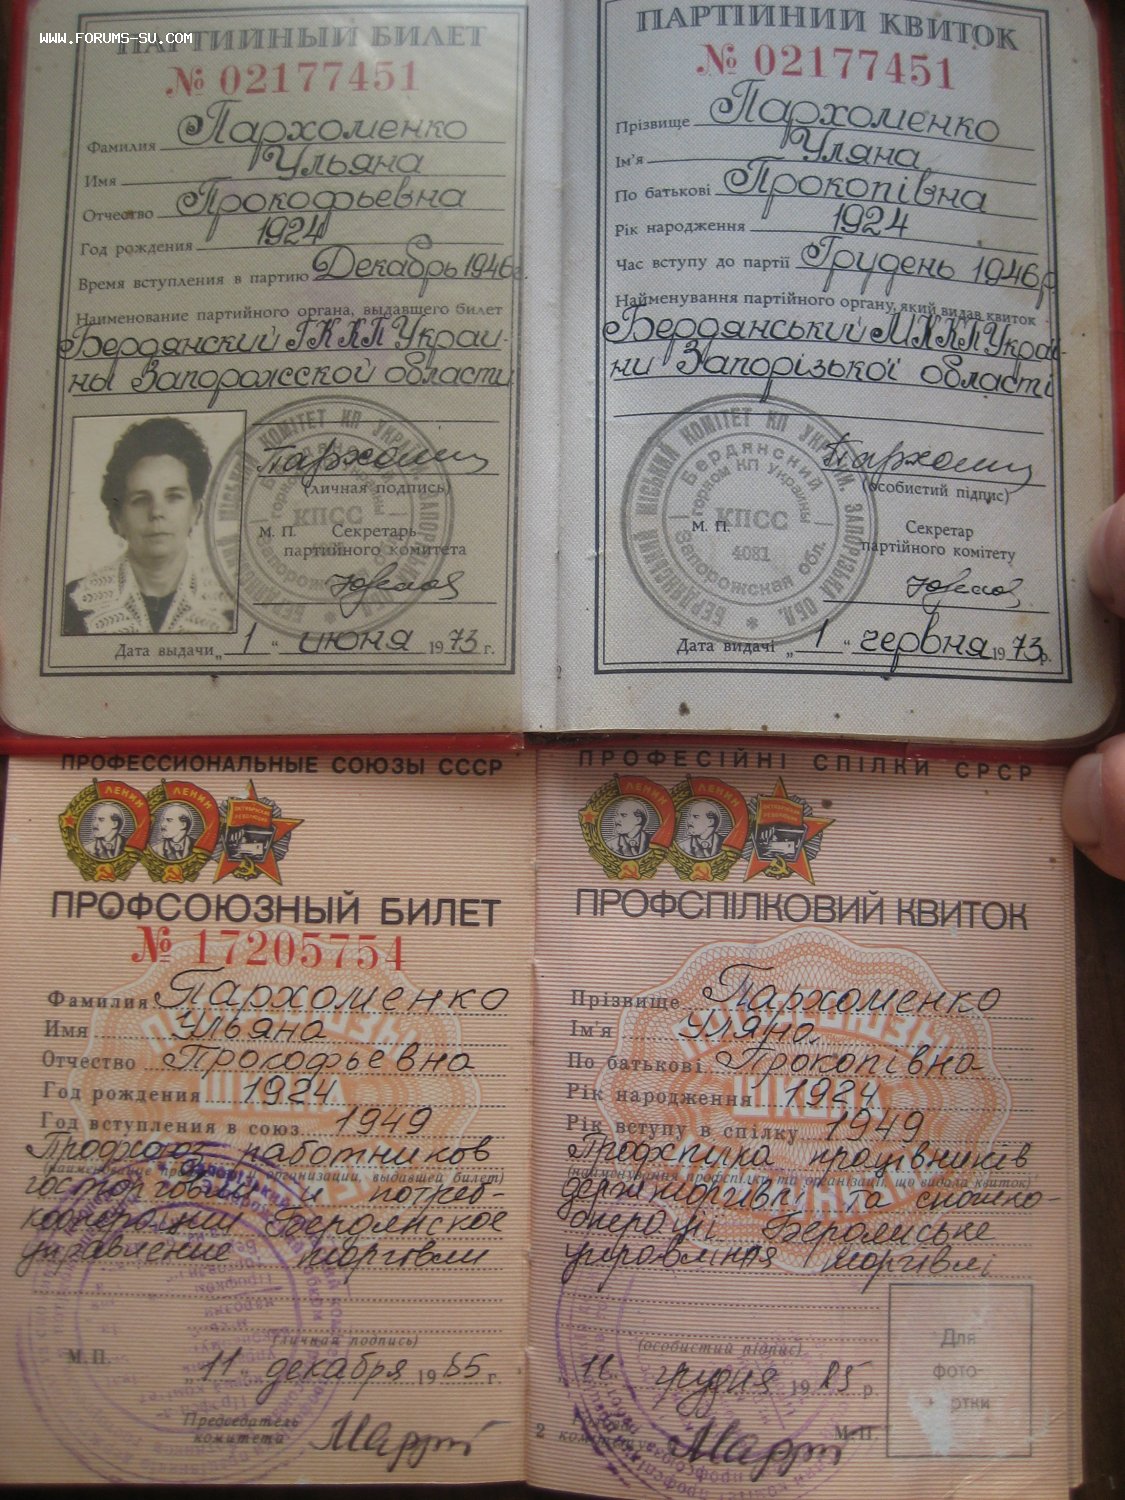 www.forums-su.com
ПАРТИЙНЫЙ БИЛЕТ
№ 02177451
Фамилия Пархоменко
Имя Ульяна
Отчество Прокофьевна
Год рождения 1924
Время вступления в партию Декабрь 1946г.
Наименование партийного органа, выдавшего билет
Бердянский ГК КП Украи-
ны Запорожсской области
(личная подпись)
М. П. Секретарь
партийного комитета
Дата выдачи „1“ июня 1973 г.
ПАРТІЙНИЙ КВИТОК
№ 02177451
Прізвище Пархоменко
Ім'я Уляна
По батькові Прокопівна
Рік народження 1924
Час вступу до партії Грудень 1946р.
Найменування партійного органу, який видав квиток
Бердянський МК КП Украї-
ни Запорізької області
(особистий підпис)
М. П. Секретар
партійного комітету
Дата видачі „1“ червня 1973р.
БЕРДЯНСЬКИЙ МІСЬКИЙ КОМІТЕТ КП УКРАЇНИ, ЗАПОРІЗЬКА ОБЛ.
Бердянский горком КП Украины
КПСС
4081
Запорожская обл.
ПРОФЕССИОНАЛЬНЫЕ СОЮЗЫ СССР
ЛЕНИН ЛЕНИН ОКТЯБРЬСКАЯ РЕВОЛЮЦИЯ
ПРОФСОЮЗНЫЙ БИЛЕТ
№ 17205754
Фамилия Пархоменко
Имя Ульяна
Отчество Прософьевна
Год рождения 1924
Год вступления в союз 1949
Профсоюз работников
(наименование организации, выдавшей билет)
госторговли и потреб-
кооперации Бердянское
управление торговли
(личная подпись)
М. П. „11“ декабря 1985 г.
Председатель
комитета
ПРОФЕСІЙНІ СПІЛКИ СРСР
ЛЕНИН ЛЕНИН ОКТЯБРЬСКАЯ РЕВОЛЮЦИЯ
ПРОФСПІЛКОВИЙ КВИТОК
Прізвище Пархоменко
Ім'я Уляна
По батькові Прокопівна
Рік народження 1924
Рік вступу в спілку 1949
Профспілка працівників
(найменування профспілки та організації, що видала квиток)
держторгівлі та спожив-
операції Бердянське
управління торгівлі
(особистий підпис)
грудня 1985 р.
Для
фото-
ртки
2
М. П.